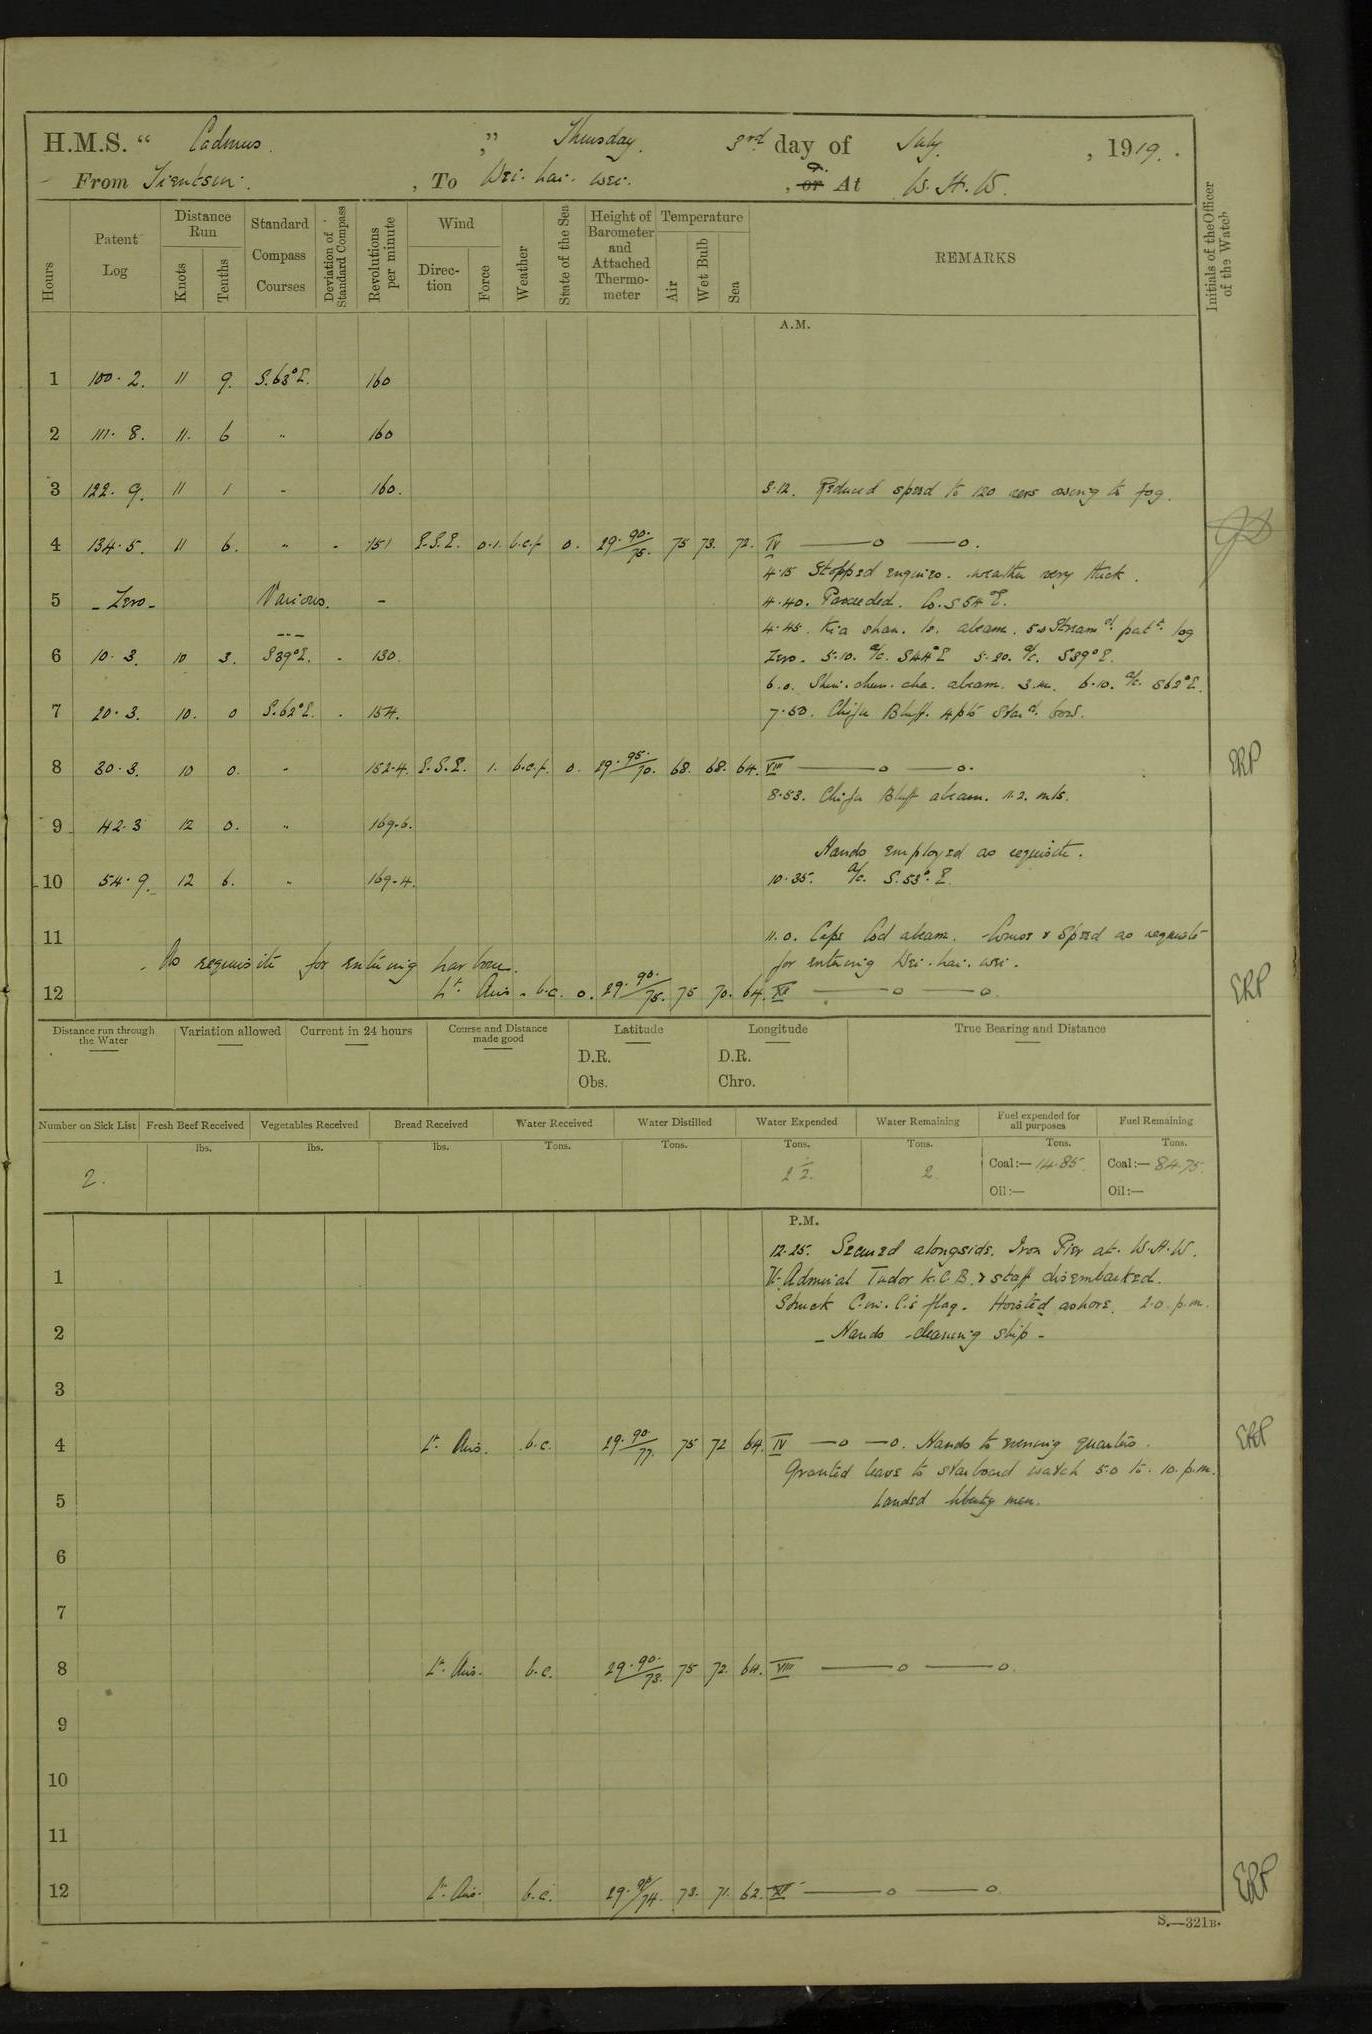 H.M.S. “ Cadmus. ,” Thursday. 3rd day of July. , 1919.
From Tientsin. , To Wei. hai. wei. , or & At W. H. W.
Hours
Patent Log
Distance Run
Knots
Tenths
Standard Compass Courses
Deviation of Standard Compass
Revolutions per minute
Wind
Direction
Force
Weather
State of the Sea
Height of Barometer and Attached Thermometer
Temperature
Air
Wet Bulb
Sea
REMARKS
Initials of the Officer of the Watch
A.M.
1 100. 2. 11 9. S.63°E. 160
2 111. 8. 11. 6 " 160
3 122. 9. 11 1 " 160. 3.12. Reduced speed to 120 revs owing to fog.
4 134. 5. 11 6. " - 151 E.S.E. 0.1. b.c.f. 0. 29. 90./75. 75 73. 72. IV —o —o.
4.15 Stopped engines. weather very thick.
5 - Zero - Various. - 4.40. Proceeded. Co. S 54°E.
4.45. Kia shan. Is. abeam. Streamd. patt. log
6 10. 3. 10 3. S39°E. - 130. Zero. 5.10. a/c. S44°E 5.20. a/c. S39°E.
6.0. abeam. 3.m. 6.10. a/c. S62°E.
7 20. 3. 10. 0 S.62°E. - 154. 7.50. Chifu Bluff. 4 pts Stard. bow.
8 30. 3. 10 0. " 152.4. E.S.E. 1. b.c.f. 0. 29. 95./70. 68. 68. 64. VIII —o —o. ERP
8.53. Chifu Bluff abeam. mls.
9 42. 3 12 0. " 169.6.
Hands employed as requisite.
10 54. 9. 12 6. " 169.4. 10.35. a/c. S.53°.E.
11 11.0. Cape Cod abeam. Course & Speed as requisite
As requisite for entering harbour. for entering Wei. hai. wei.
12 Lt. Airs. b.c. 0. 29. 90./75. 75 70. 64. XII —o —o. ERP
Distance run through the Water
Variation allowed
Current in 24 hours
Course and Distance made good
Latitude
D.R.
Obs.
Longitude
D.R.
Chro.
True Bearing and Distance
Number on Sick List
Fresh Beef Received
Vegetables Received
Bread Received
Water Received
Water Distilled
Water Expended
Water Remaining
Fuel expended for all purposes
Fuel Remaining
lbs. lbs. lbs. Tons. Tons. Tons. Tons. Tons. Tons.
2. 2 ½. 2 Coal:— 14.85. Coal:— 84.75.
Oil:— Oil:—
P.M.
12.25. Secured alongside. Iron Pier at. W.H.W.
1 V. Admiral Tudor K.C.B. & staff disembarked.
Struck C.in.C.'s flag. Hoisted ashore. 2.0. p.m.
2 - Hands cleaning ship -
3
4 Lt. Airs. b.c. 29. 90./77. 75 72 64. IV —o —o. Hands to evening quarters. ERP
Granted leave to starboard watch 5.0 to. 10. p.m.
5 Landed liberty men.
6
7
8 Lt. Airs. b.c. 29. 90./73. 75 72. 64. VIII —o —o.
9
10
11
12 Lt. Airs. b.c. 29. 90/74. 73. 71. 62. XII —o —o. ERP
S.—321B.